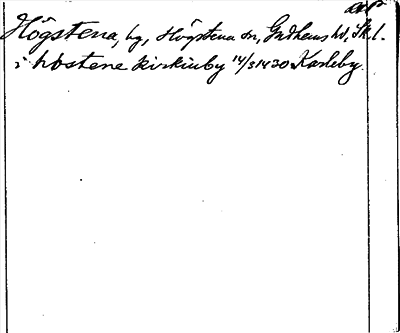 Högstena, by, Högstena sn, Gudhems hd, Sk.l.
i høstene kirkiuby 14/3 1420 Karleby.